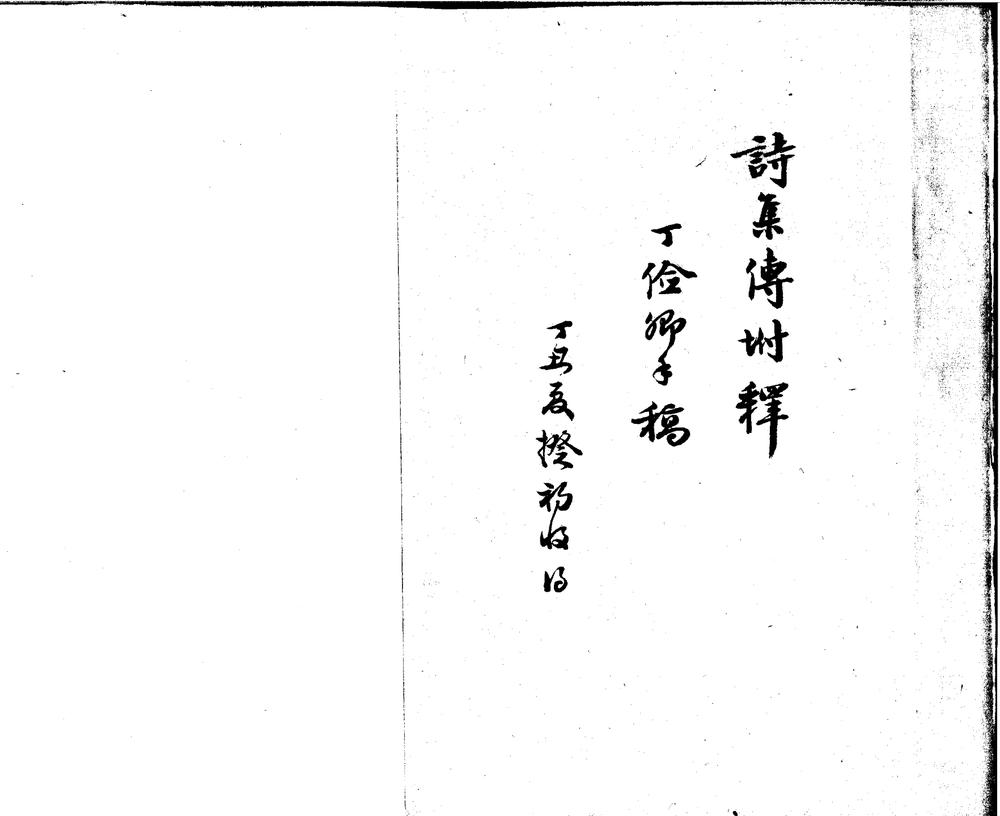 詩集傳坿釋
丁俭卿手稿
丁丑夏揆初收得